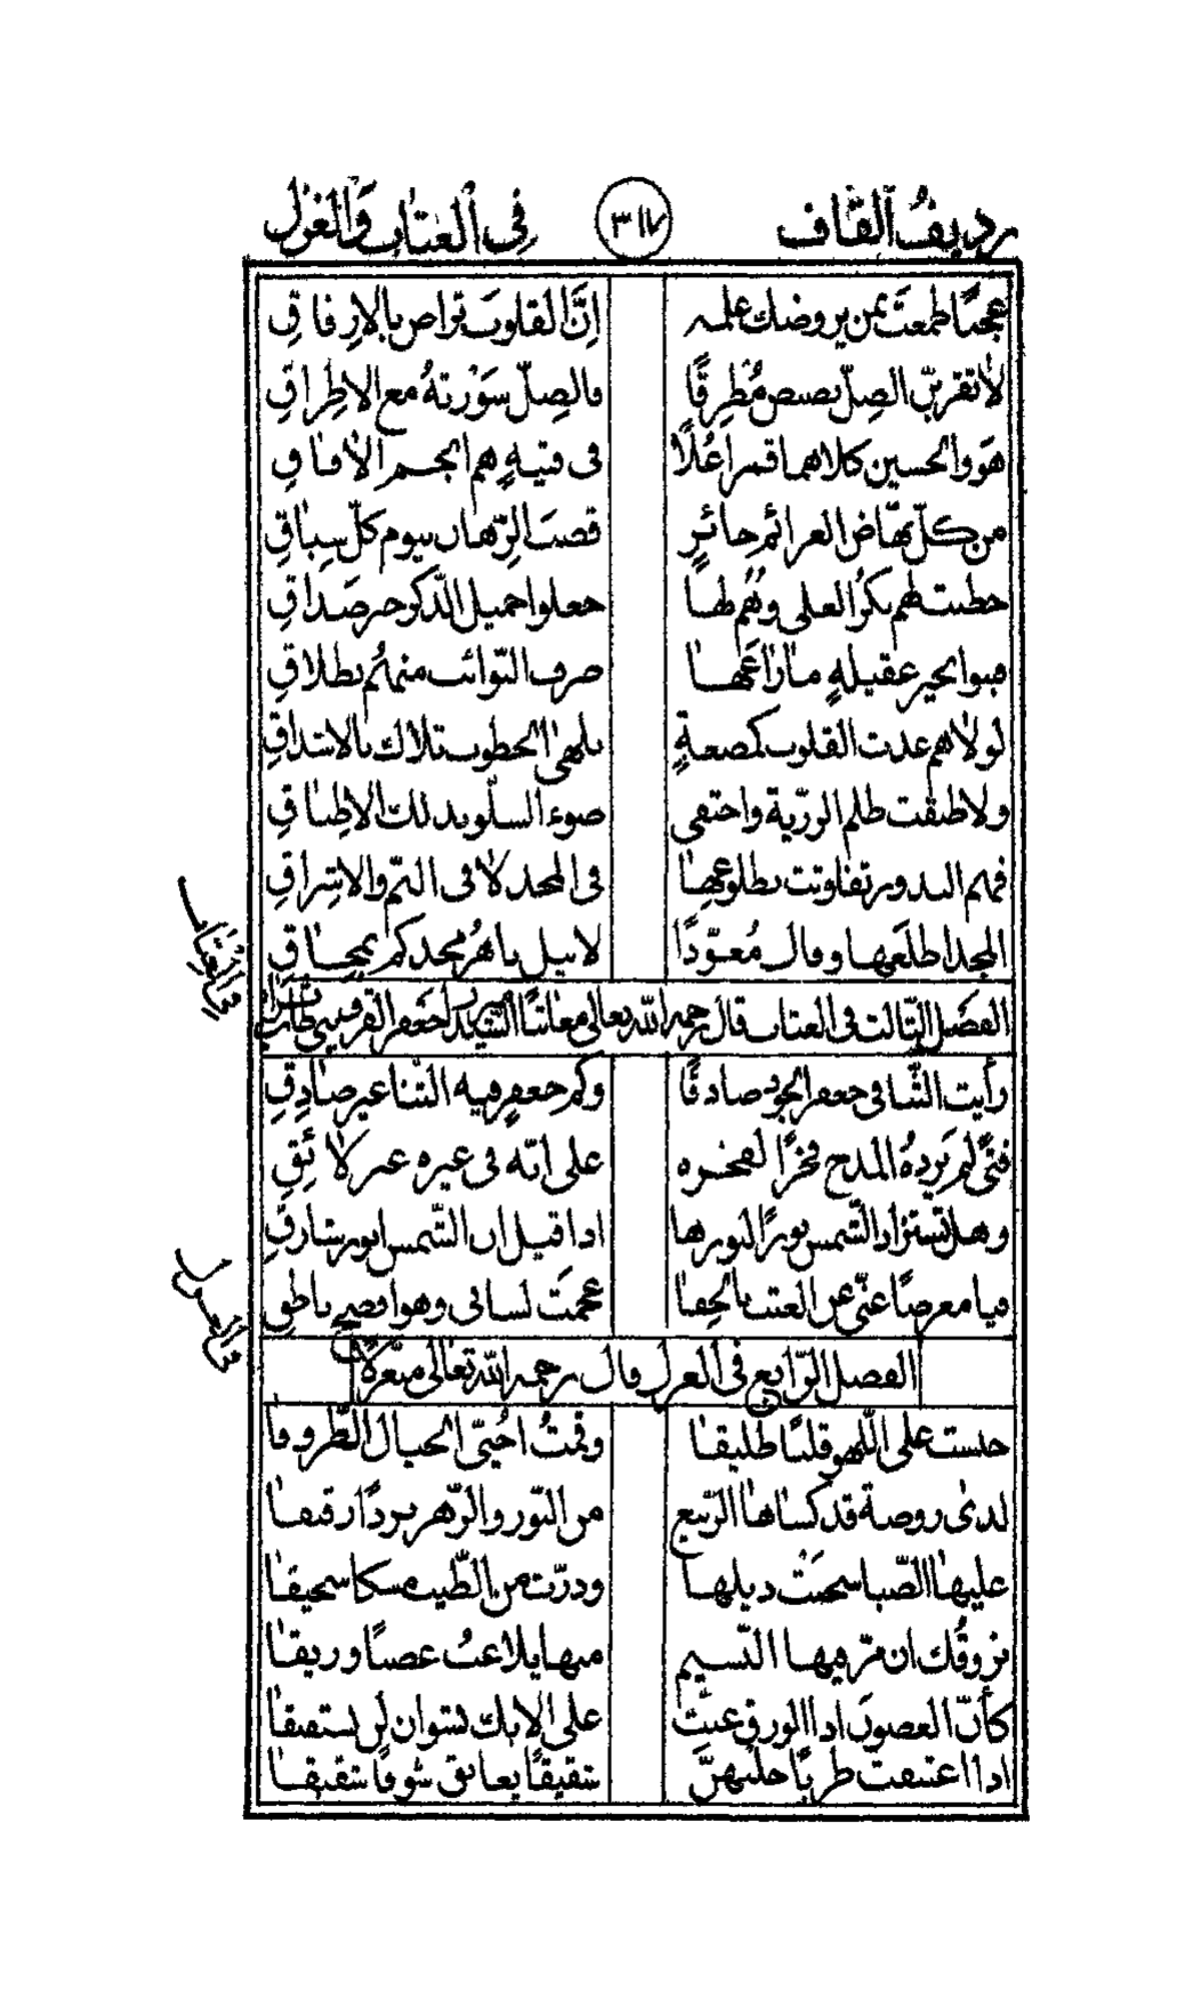 رديفُ القاف ٣١٧ في العتاب والغزل
عجبًا طمعتَ بمن يروضك علمه إنَّ القلوبَ تراض بالإرفاقِ
لا تقربنّ الصِلّ بصبص مُطرِقًا فالصِلّ سَوْرتهُ مع الاطراقِ
هو والحسين كلاهما قمرا عُلًا في فتيةٍ هم انجم الآفاقِ
من كلّ نهّاض العزائم حائزٍ قصبَ الرِّهان بيوم كلّ سِباقِ
خطبت لهم بكرُ العلى وهُم لها جعلوا جميل الذّكر خير صَداقِ
فبنوا بخير عقيلةٍ ما راعها صرف النّوائب منهُم بطلاقِ
لولاهم غدت القلوب كمضغةٍ بلهى الخطوب تلاك بالاشداقِ
ولاطبقت ظلم الرزّية واختفى ضوء السلّو بذلك الاطباقِ
فهم البدور تفاوتت بطلوعها في المجد لا في التمّ والاشراقِ
المجد اطلعها وقال مُعوّذًا لا نيل باهرُ مجدكم بمحاقِ
من العتاب
الفصل الثالث في العتاب قال رحمه الله تعالى معاتبًا السّيد ميرزا جعفر القزويني طاب ثراه
رأيت الثّنا في جعفر الجود صادقًا وكم جعفرٍ فيه الثّنا غير صادِقِ
فتًى لم يَزدهُ المدح فخرًا لفخره على انّه في غيره غير لائقِ
وهل تستزاد الشّمس نورًا لنورها اذا قيل ان الشّمس نور شارقِ
فيا معرضًا عنّي عن العتب بالجفا عجمتَ لساني وهو افصح ناطقِ
من الغزل
الفصل الرّابع في الغزل وقال رحمه الله تعالى متغزّلًا
حبست على اللّهو قلبًا طليقا وقمتُ أُحيّي الخيال الطّروقا
لدى روضة قد كساها الرّبيع من النّور والزّهر بردًا رقيقا
عليها الصّبا سحبَت ذيلها وذرّت من الطّيب مسكا سحيقا
يروقُك ان مرّ فيها النّسيم منها يلاعبُ غصنًا وريقا
كأنّ الغصون اذا الورق غنّت على الايك نشوان لن يستفيقا
اذا اعتنقت طربًا خلتهنّ شقيقًا يعانق شوقًا شقيقا